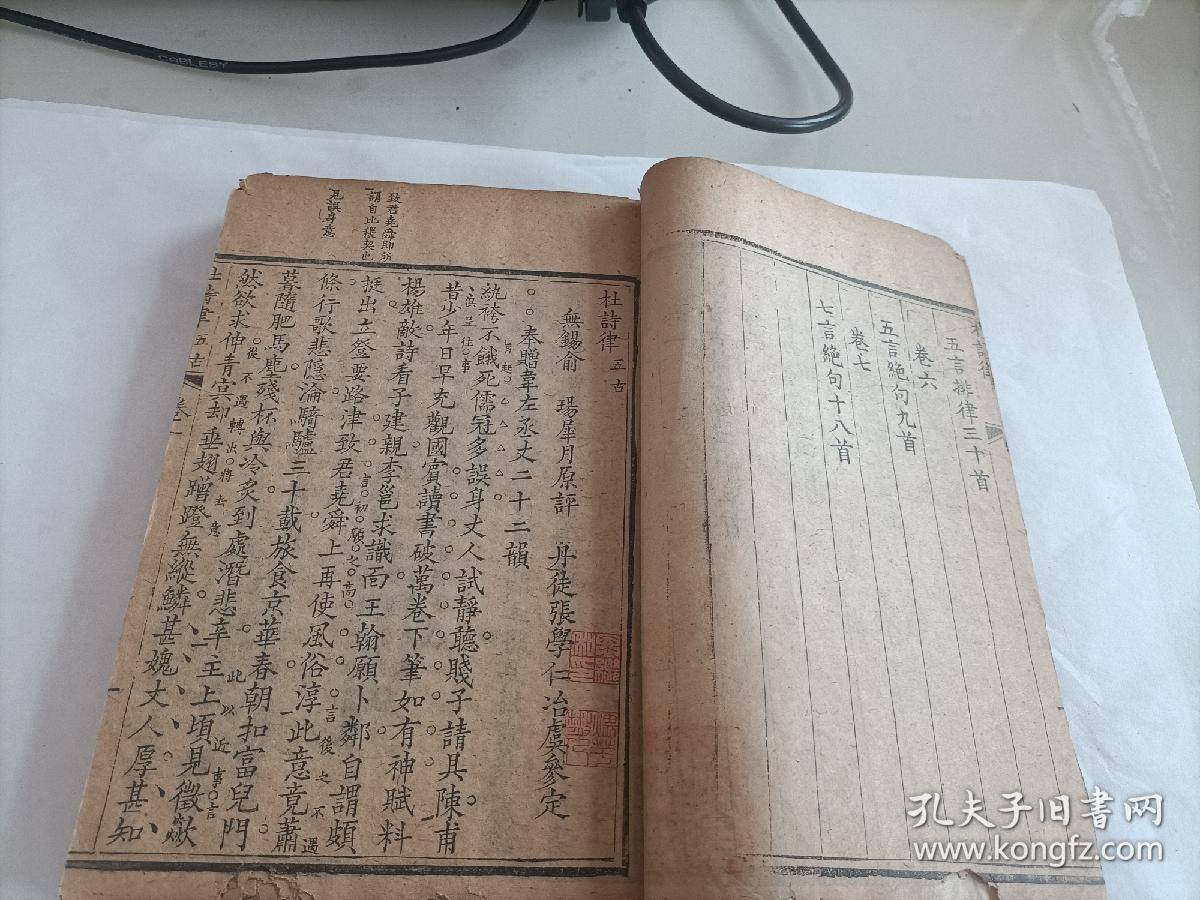 CABLESY
五言排律三十首
卷六
五言絶句九首
卷七
七言絶句十八首
致君堯舜即所
謂自比稷契也
見誤身意
杜詩律 五古
無錫俞 瑒犀月原評 丹徒張學仁冶虞參定
奉贈韋左丞丈二十二韻
紈袴不餓死儒冠多誤身丈人試靜聽賤子請具陳甫
昔少年日早充觀國賓讀書破萬卷下筆如有神賦料
楊雄敵詩看子建親李邕求識面王翰願卜鄰自謂頗
挺出立登要路津致君堯舜上再使風俗淳此意竟蕭
條行歌悲隱淪騎驢三十載旅食京華春朝扣富兒門
暮隨肥馬塵殘杯與冷炙到處潛悲辛主上頃見徵歘
然欲求伸青冥却垂翅蹭蹬無縱鱗甚媿丈人厚甚知
言初願之高
言後之不遇
後不遇轉出將去意
此以近事言
杜詩律 五古
孔夫子旧书网
www.kongfz.com